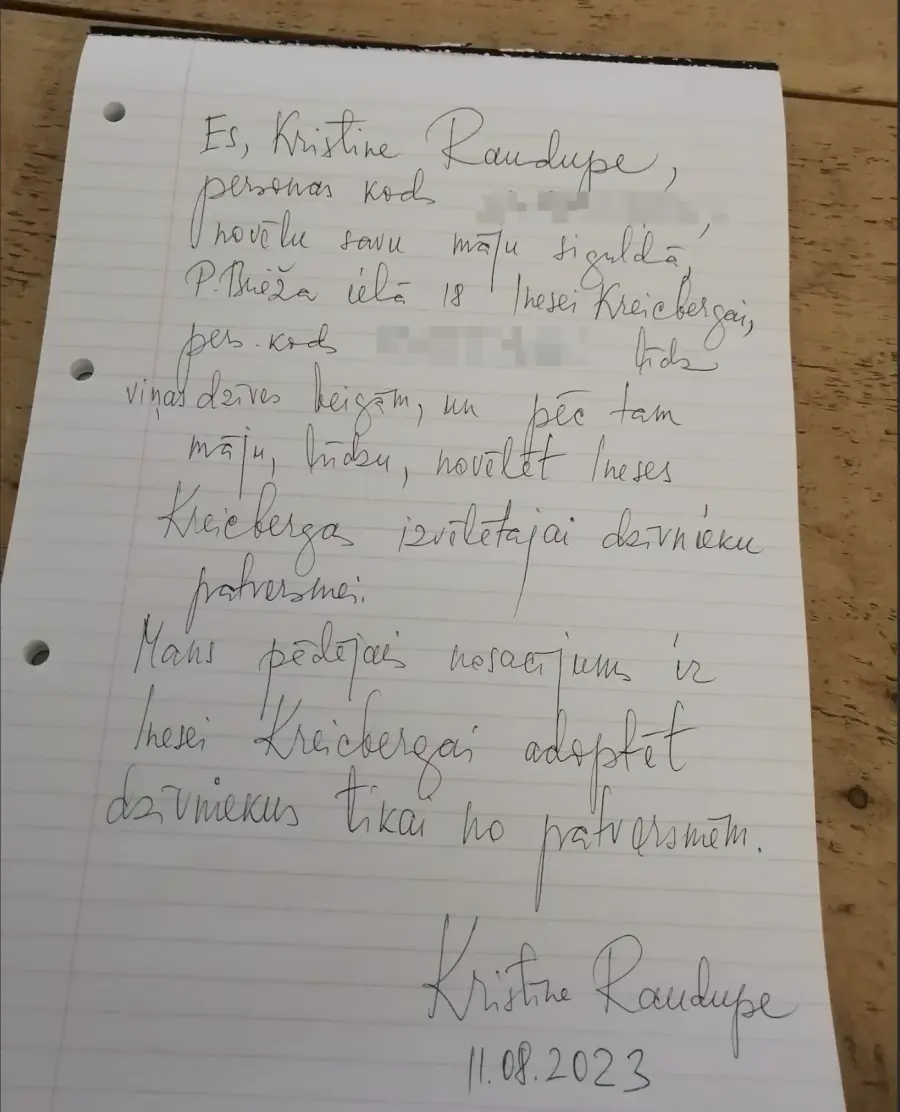 Es, Kristine Raudupe,
personas kods
novēlu savu māju siguldā,
P. Brieža ielā 18 Inesei Kreicbergai,
pers. kods līdz
viņas dzīves beigām, un pēc tam
māju, lūdzu, novēlēt Ineses
Kreicbergas izvēlētajai dzīvnieku
patversmei.
Mans pēdējais nosacījums ir
Inesei Kreicbergai adoptēt
dzīvniekus tikai no patversmēm.
Kristine Raudupe
11.08.2023